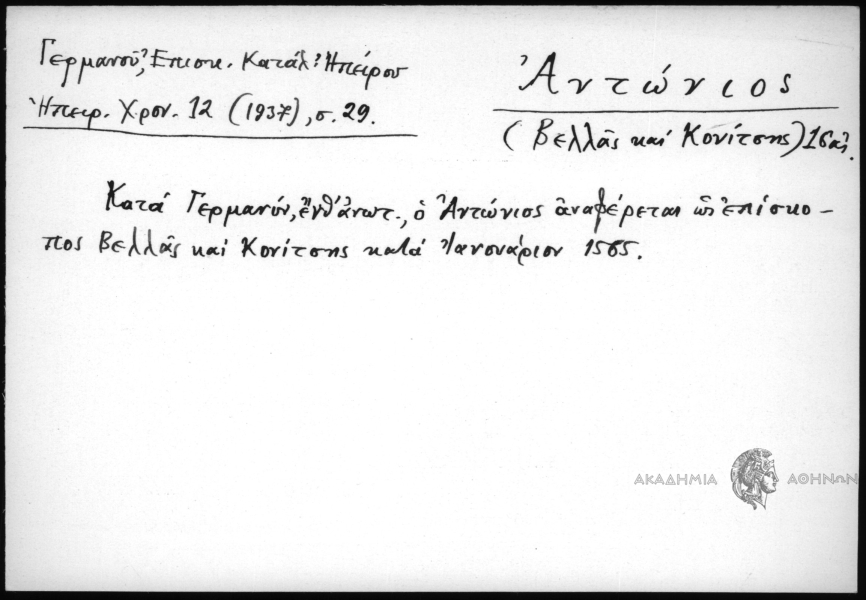 Γερμανοῦ, Ἐπισκ. Κατάλ. Ἠπείρου
Ἠπειρ. Χρον. 12 (1937), σ. 29.
Ἀντώνιος
(Βελλᾶς καί Κονίτσης) 16 αἰ.
Κατά Γερμανόν, ἔνθ' ἀνωτ., ὁ Ἀντώνιος ἀναφέρεται ὡς ἐπίσκο-
πος Βελλᾶς καί Κονίτσης κατά Ἰανουάριον 1565.
ΑΚΑΔΗΜΙΑ ΑΘΗΝΩΝ